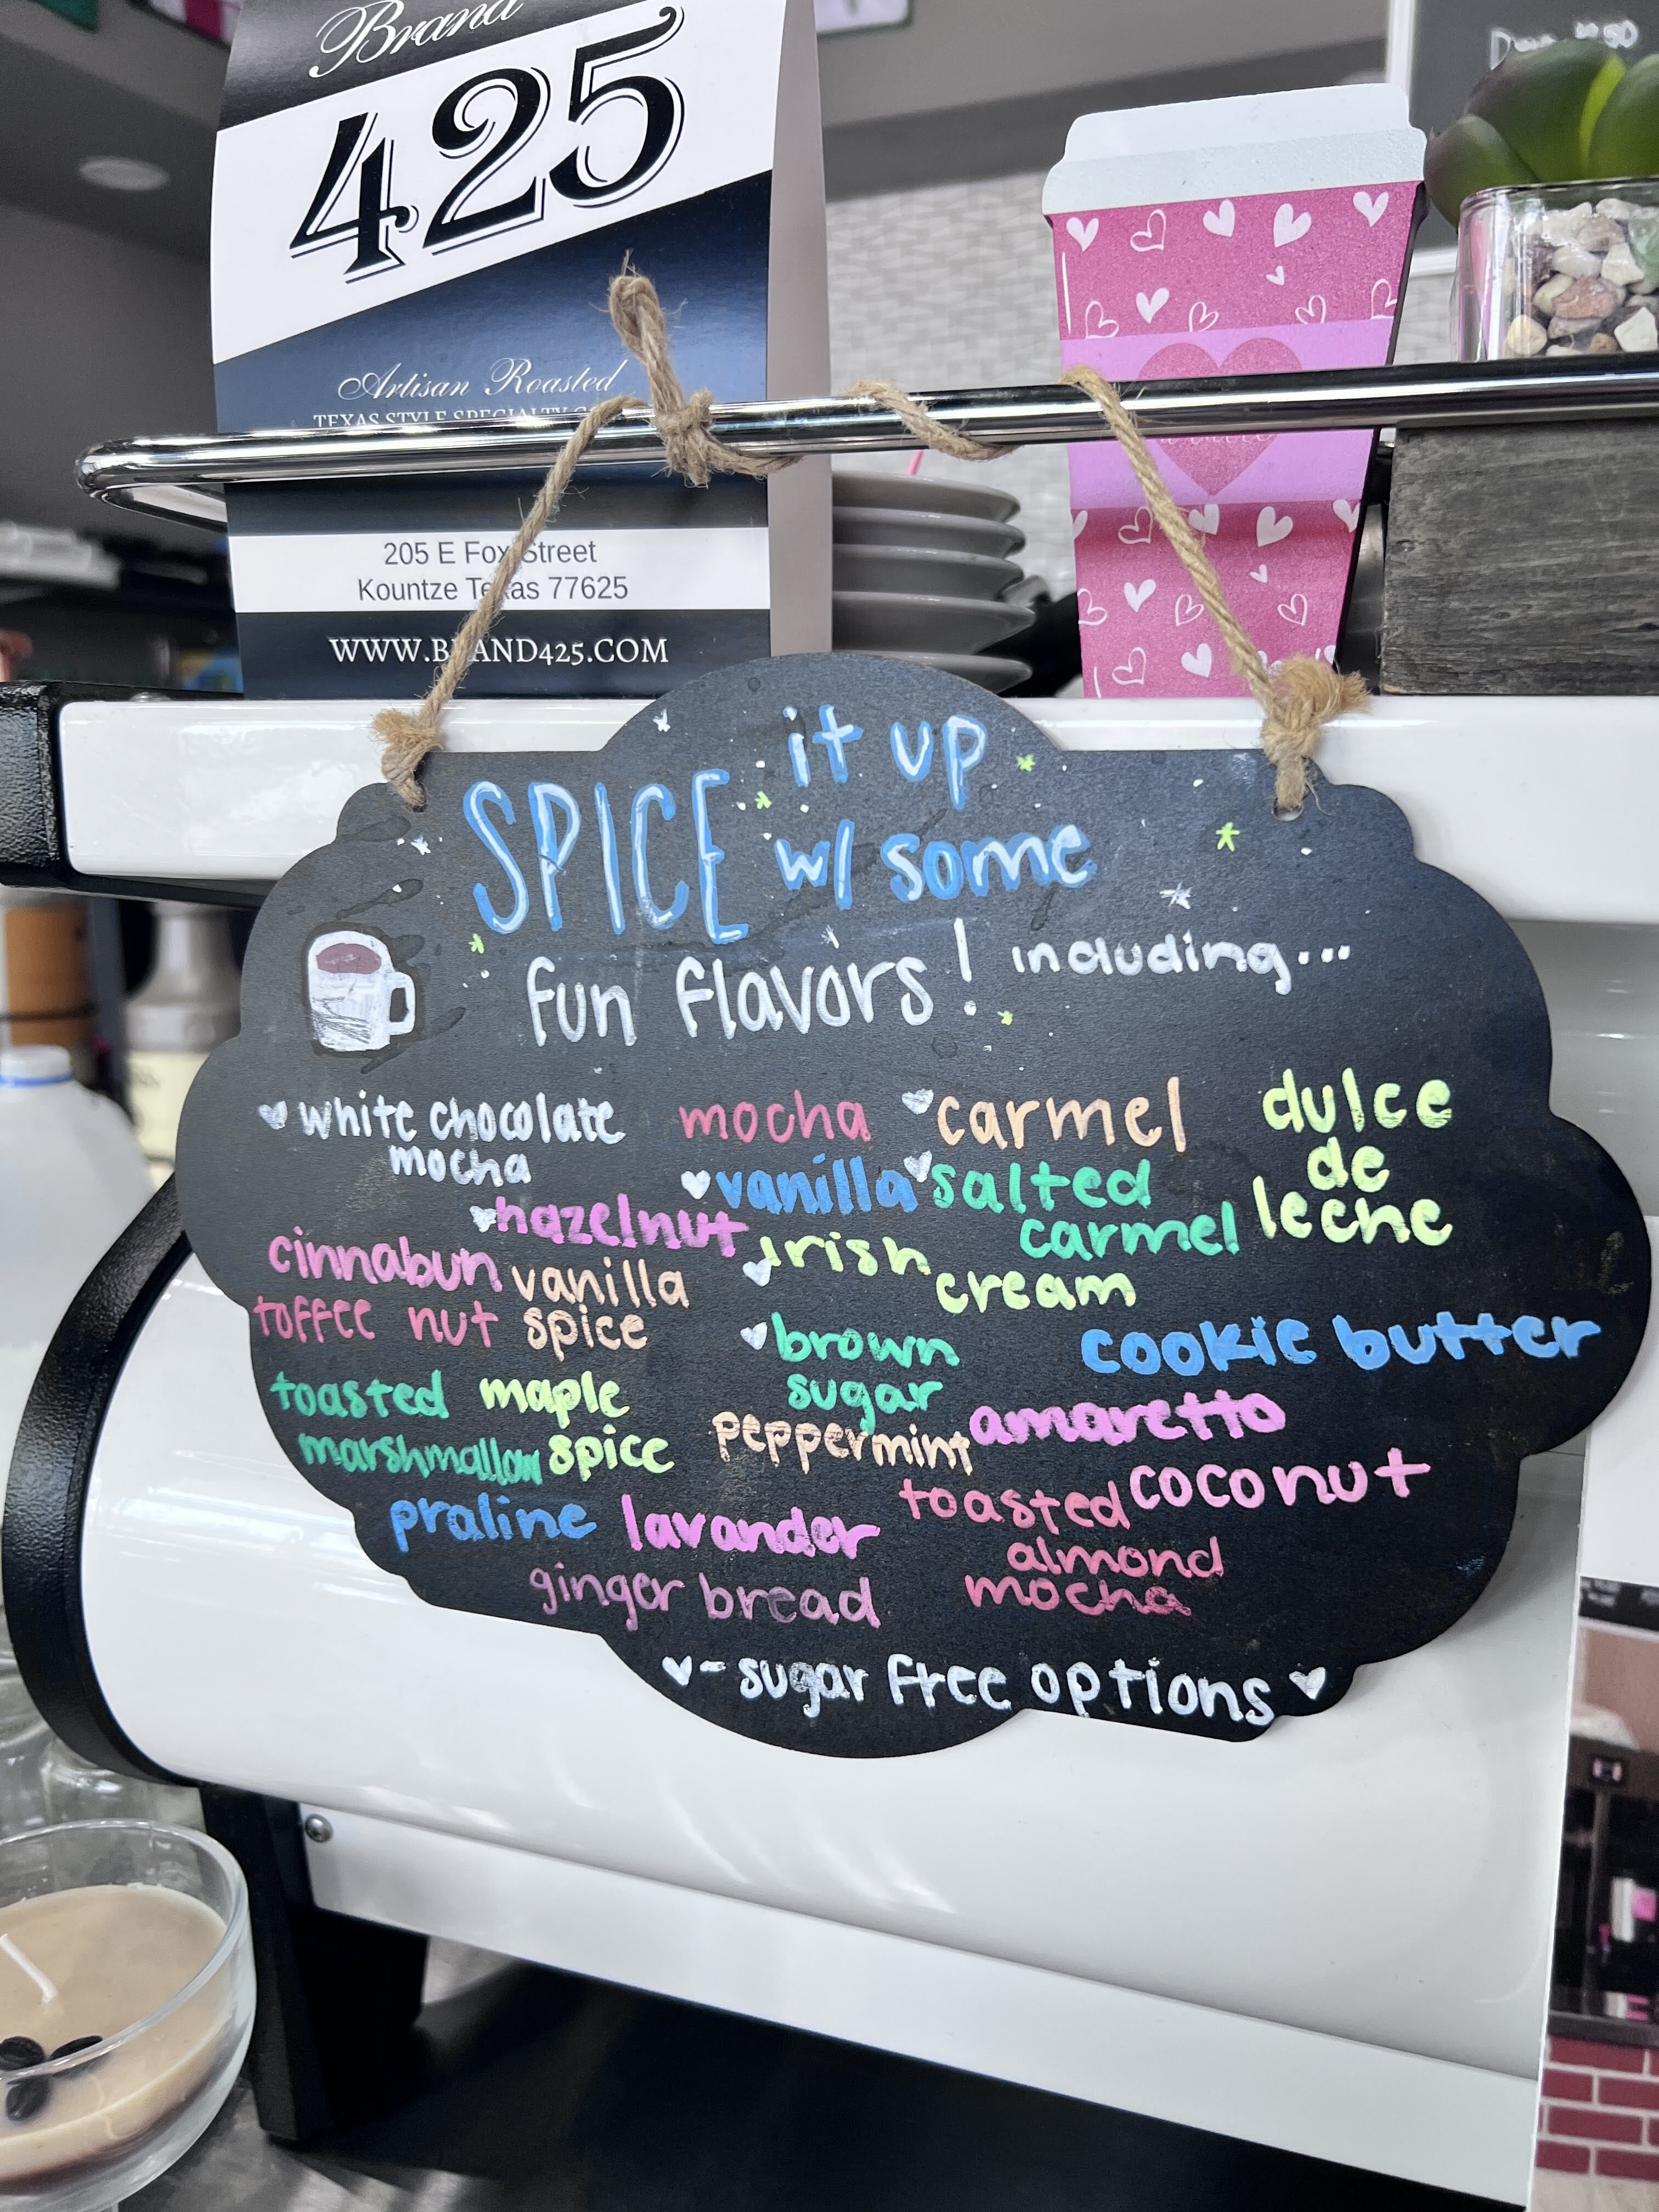 Brand
425
Artisan Roasted
TEXAS STYLE SPECIALTY
205 E Fox Street
Kountze Texas 77625
WWW.BRAND425.COM
it up
SPICE w/ some
fun flavors! including...
♥ white chocolate
mocha
mocha
♥ carmel
dulce
de
leche
♥ vanilla
♥ salted
carmel
♥ hazelnut
♥ Irish
cream
cinnabun
vanilla
spice
toffee nut
♥ brown
sugar
cookie butter
toasted
marshmallow
maple
spice
peppermint
amaretto
praline
lavander
toasted
almond
mocha
coconut
ginger bread
♥ - sugar free options ♥